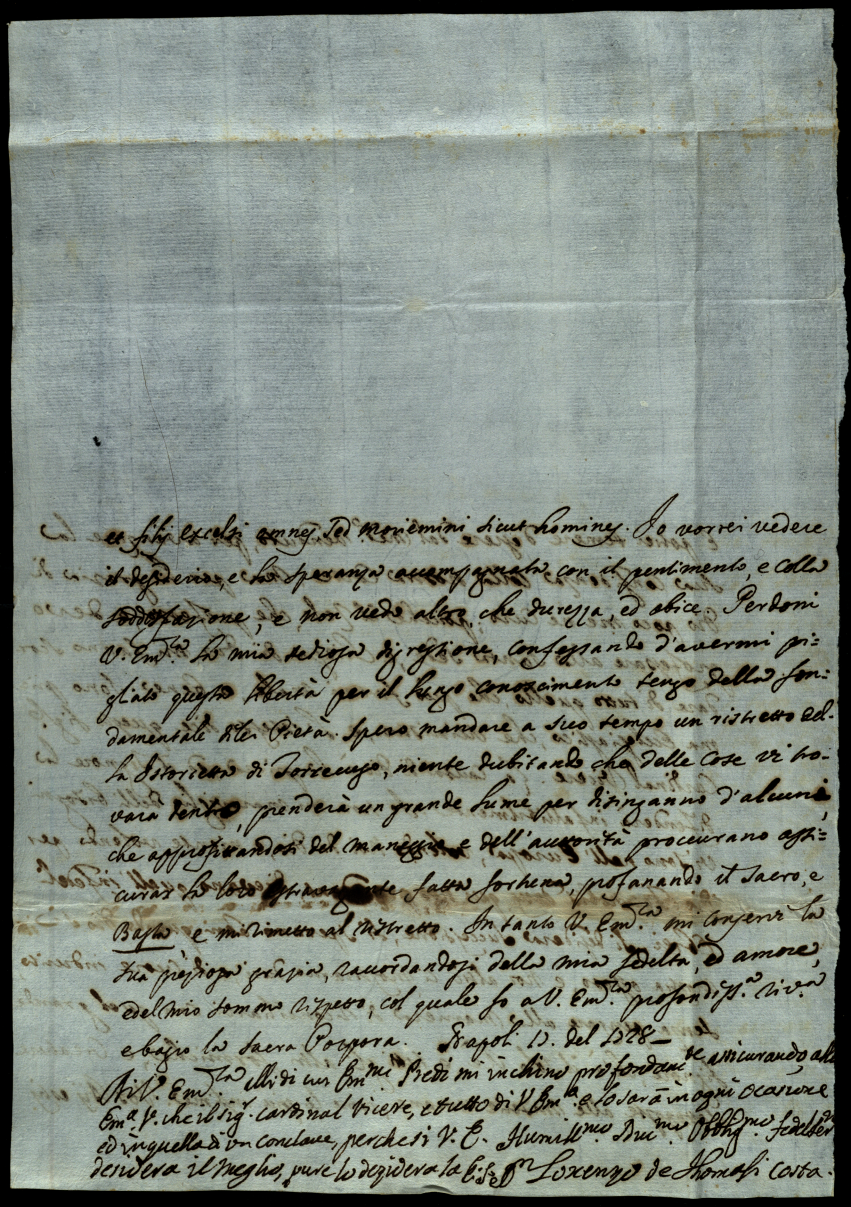 et filij excelsi omnes. Sed moriemini sicut homines. Io vorrei vedere
il desiderio, e la speranza accompagnata con il pentimento, e colla
soddisfazione, e non vedo altro, che durezza, ed obice. Perdoni
V. Em.za la mia tediosa digressione, confessando d'avermi pi-
gliato questa libertà per il lungo conoscimento tengo della fon-
damentale Pietà. Spero mandare a suo tempo un ristretto del-
la Istorietta di Torrecuso, niente dubitando che delle cose vi tro-
varà dentro, prenderà un grande lume per disinganno d'alcuni,
che approfittandosi del maneggio e dell'autorità procurano assi-
curar la loro fatta fortuna, profanando il sacro, e
Basta e mi rimetto al ristretto. In tanto V. Em.za mi conservi la
sua preziosa grazia, raccordandosi della mia fedeltà, ed amore,
e del mio sommo rispetto, col quale fo a V. Em.za profondiss.a riv.a
e bagio la Sacra Porpora. Napoli 17. del 1728
Di V. Em.za Piedi mi inchino profondam.te assicurando, alla
Em.a V. che il sig.r Cardinal Vicere, e tutto di V Em.a e lo sarà in ogni ocasione
ed in quella d'un conclave, perche si V. E. Humill.mo Obblig.mo
desidera il meglio, pure lo dezidera la Lorenzo de Thomasi Costa.